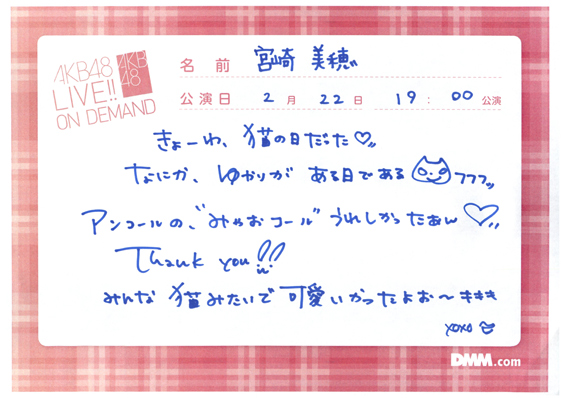 AKB48
LIVE!!
ON DEMAND
AKB
48
名前 宮崎 美穂
公演日 2月 22日 19:00公演
きょーわ、猫の日だった♡
なにか、ゆかりが ある日である フフフッ
アンコールの、"みゃおコール" うれしかったぁん♡
Thank you!!
みんな 猫みたいで 可愛いかったよぉ〜キキキ
xoxo
DMM.com